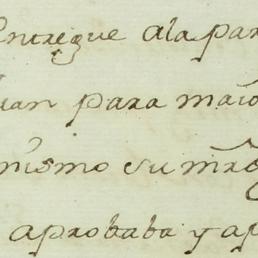 entregue ala par
uan para maio
mismo su mrd
aprobaba y ap